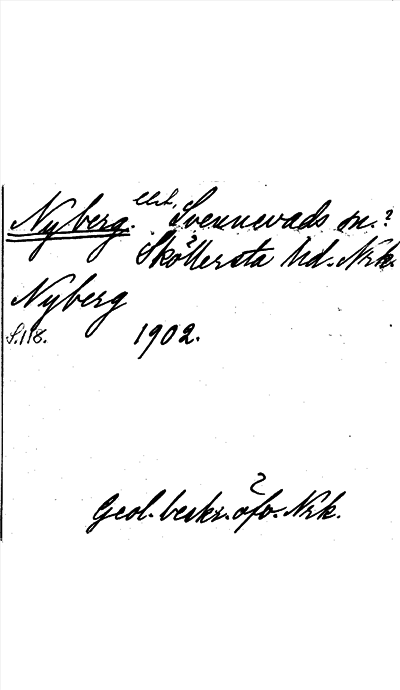 Nyberg. Svennevads sn.?
Sköllersta hd. Nrk.
Nyberg
S. 118. 1902.
Geol. beskr. öfv. Nrk.